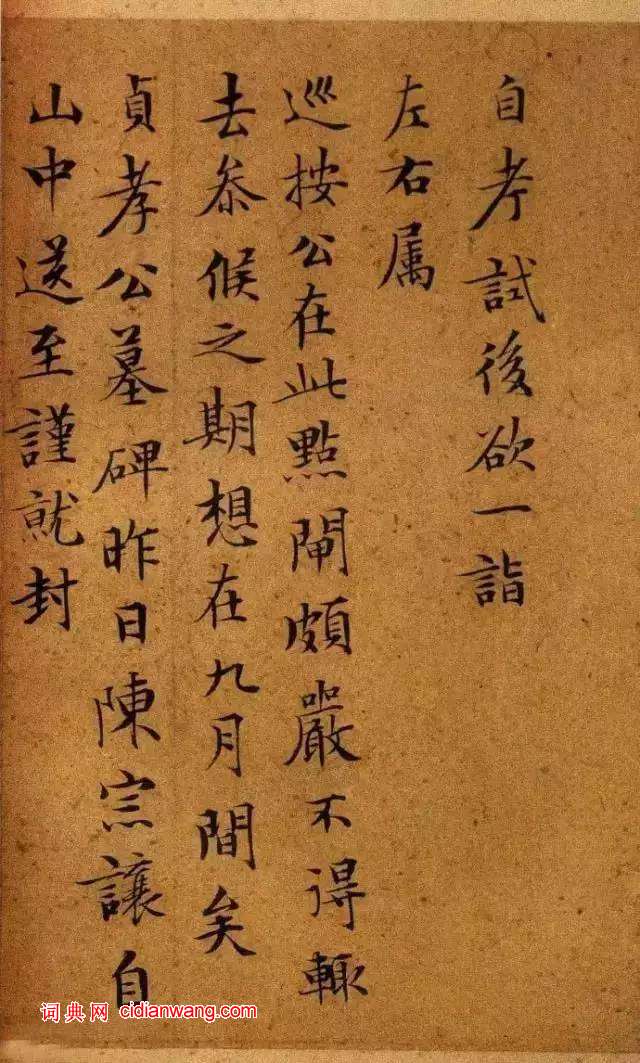 自考試後欲一詣
左右属
巡按公在此點閘頗嚴不得輙
去叅候之期想在九月間矣
貞孝公墓碑昨日陳宗讓自
山中送至謹就封
词典网 cidianwang.com